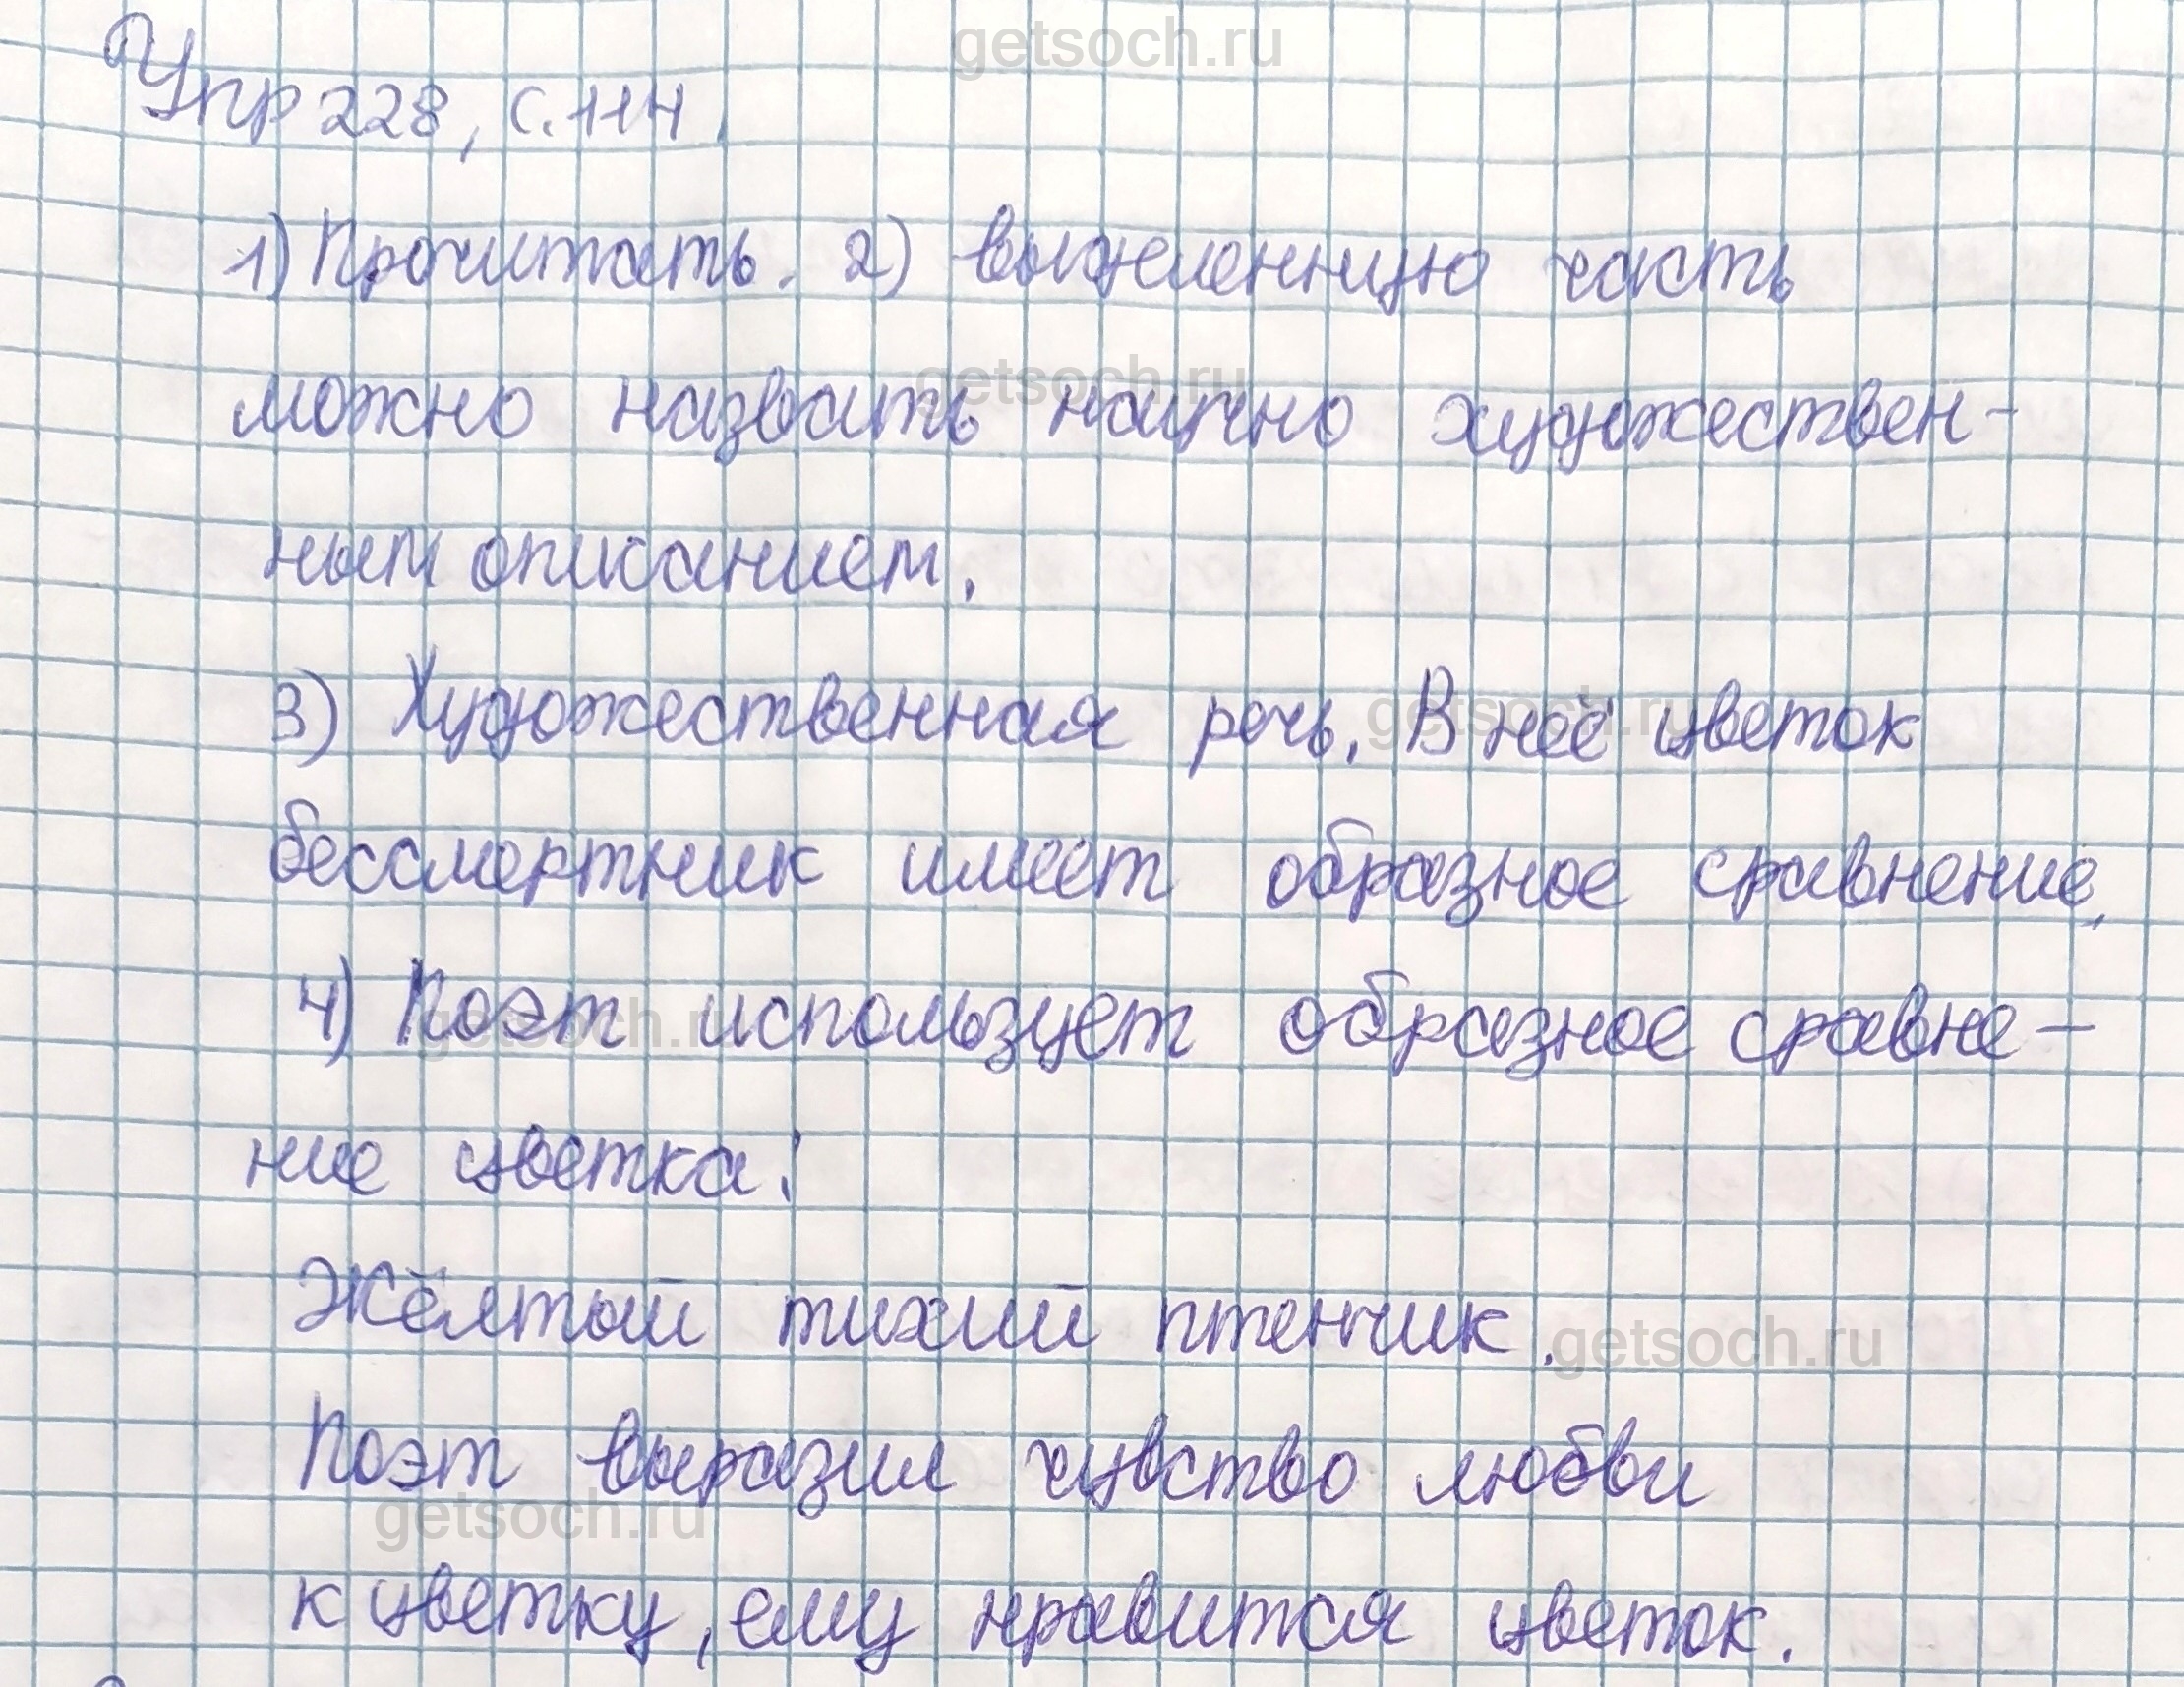 getsoch.ru
Упр 228, с. 114.
1) Прочитать. 2) выделенную часть
getsoch.ru
можно назвать научно художествен-
ным описанием.
3) Художественная речь. В неё цветок
getsoch.ru
бессмертник имеет образное сравнение.
4) Поэт использует образное сравне-
getsoch.ru
ние цветка:
Жёлтый тихий птенчик.
getsoch.ru
Поэт выразил чувство любви
getsoch.ru
к цветку, ему нравится цветок.